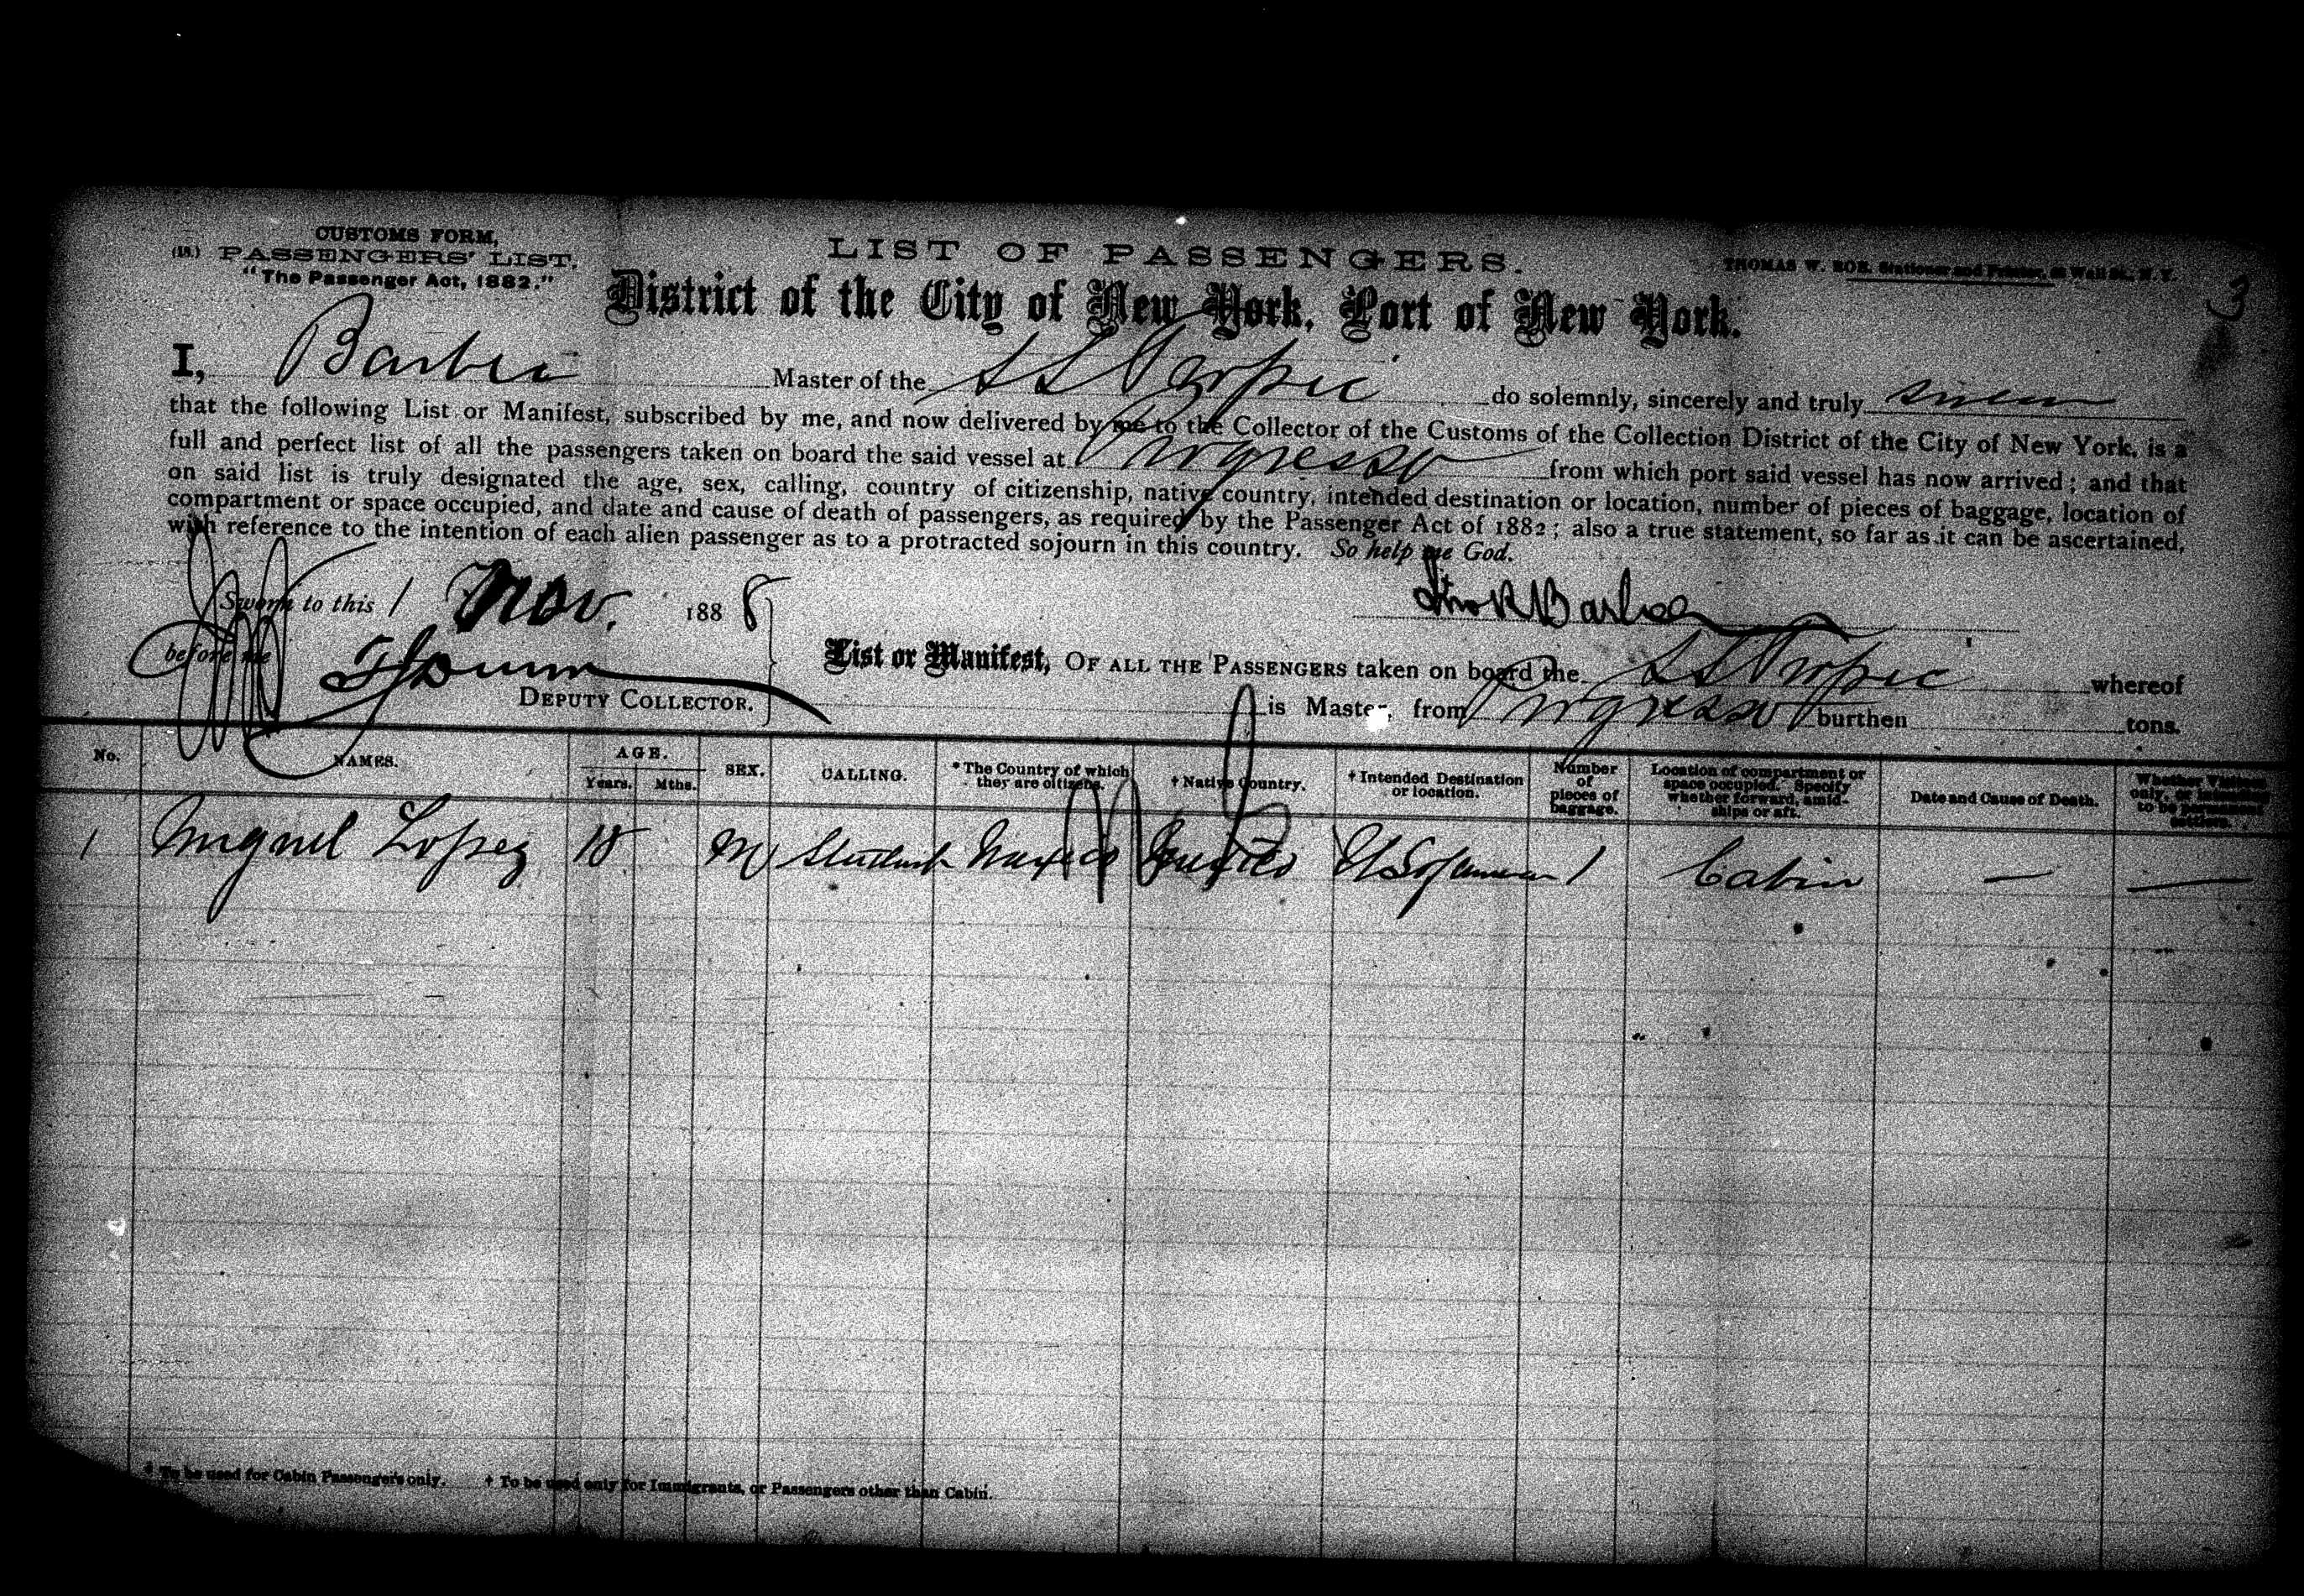 CUSTOMS FORM,
(18.) PASSENGERS' LIST.
"The Passenger Act, 1882."
LIST OF PASSENGERS.
THOMAS W. ROE, Stationer and Printer, Wall St., N. Y.
3
District of the City of New York, Port of New York.
I, Barber Master of the SS Tropic do solemnly, sincerely and truly swear
that the following List or Manifest, subscribed by me, and now delivered by me to the Collector of the Customs of the Collection District of the City of New York, is a
full and perfect list of all the passengers taken on board the said vessel at Progresso from which port said vessel has now arrived; and that
on said list is truly designated the age, sex, calling, country of citizenship, native country, intended destination or location, number of pieces of baggage, location of
compartment or space occupied, and date and cause of death of passengers, as required by the Passenger Act of 1882; also a true statement, so far as it can be ascertained,
with reference to the intention of each alien passenger as to a protracted sojourn in this country. So help me God.
Sworn to this 1 Nov. 1888
Barber
before me
DEPUTY COLLECTOR.
List or Manifest, OF ALL THE PASSENGERS taken on board the SS Tropic whereof
is Master, from Progresso burthen tons.
No. NAMES. AGE. Years. Mths. SEX. CALLING. * The Country of which they are citizens. † Native Country. † Intended Destination or location. Number of pieces of baggage. Location of compartment or space occupied. Specify whether forward, amidships or aft. Date and Cause of Death.
1 Miguel Lopez 18 M Student Mexico Mexico US of America 1 Cabin — —
* To be used for Cabin Passengers only. † To be used only for Immigrants, or Passengers other than Cabin.